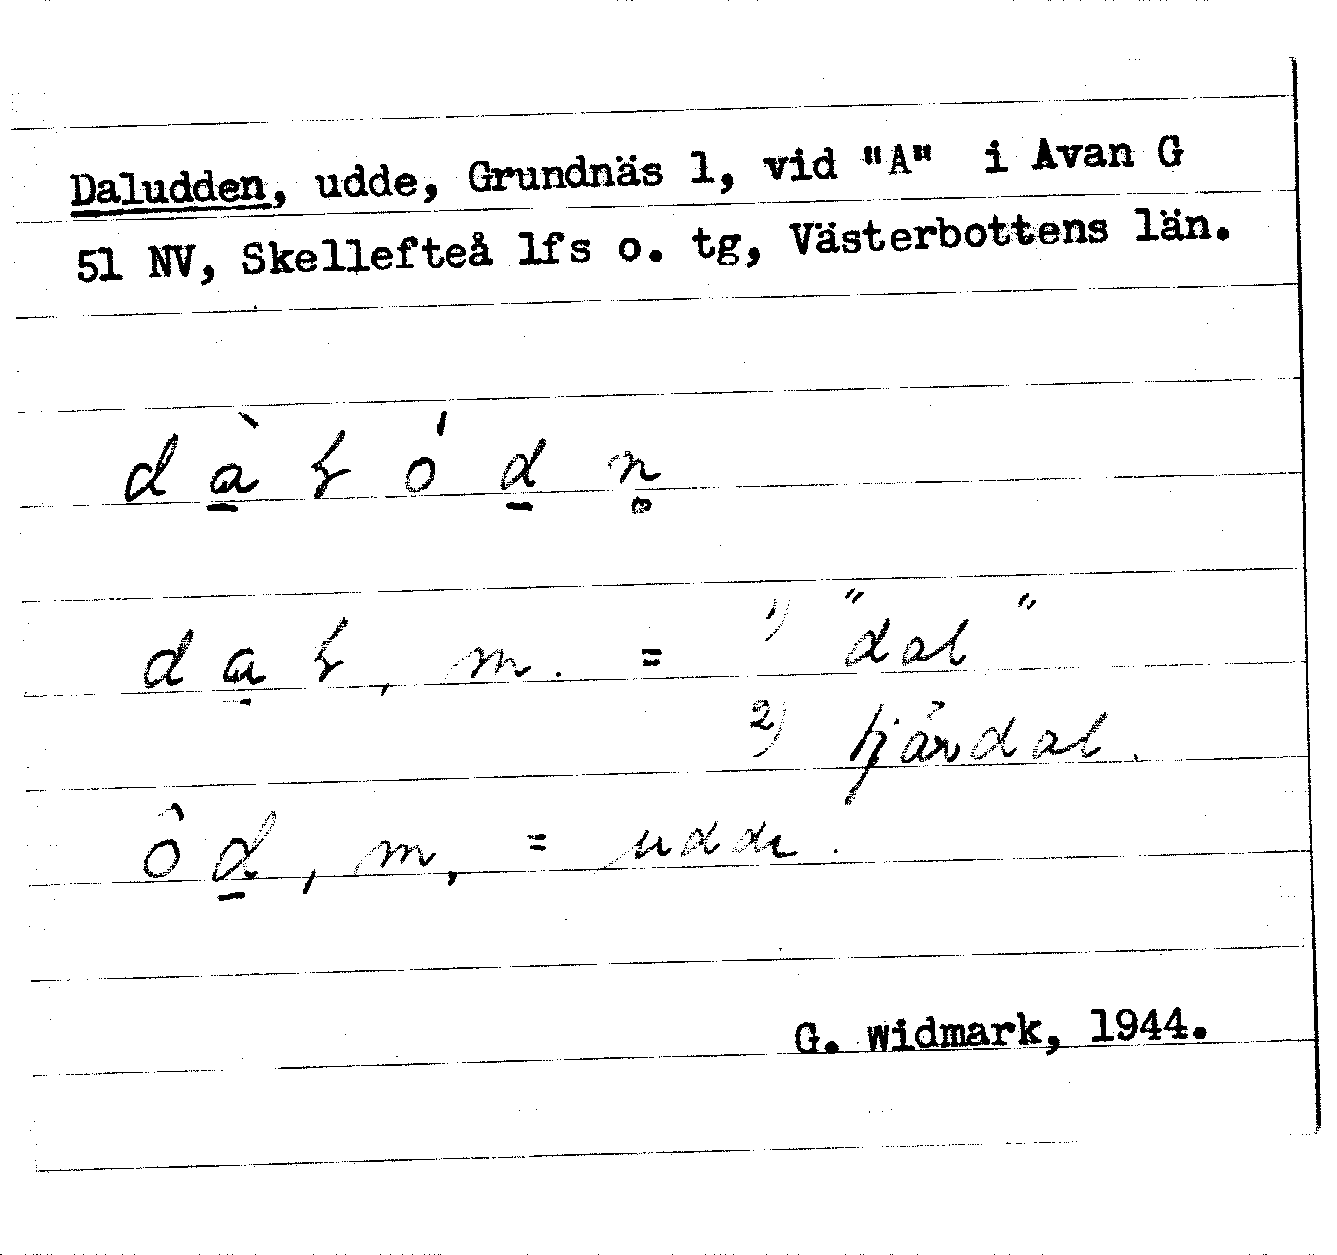 Daludden, udde, Grundnäs 1, vid "A" i Avan G
51 NV, Skellefteå lfs o. tg, Västerbottens län.
d à̱ ɽ ó ḏ n̥
d a̱ ɽ, m. = 1) "dal"
2) tjärdal.
ô ḏ, m, = udde.
G. Widmark, 1944.